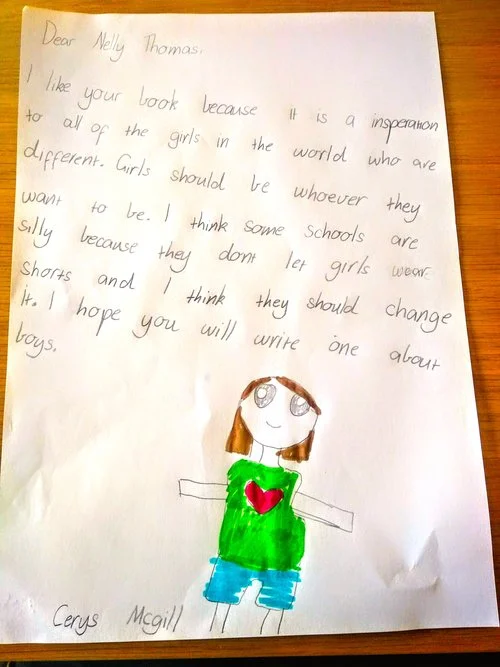 Dear Nelly Thomas.
I like your book because it is a insperation
to all of the girls in the world who are
different. Girls should be whoever they
want to be. I think some schools are
silly because they dont let girls wear
shorts and I think they should change
it. I hope you will write one about
boys.
Cerys Mcgill